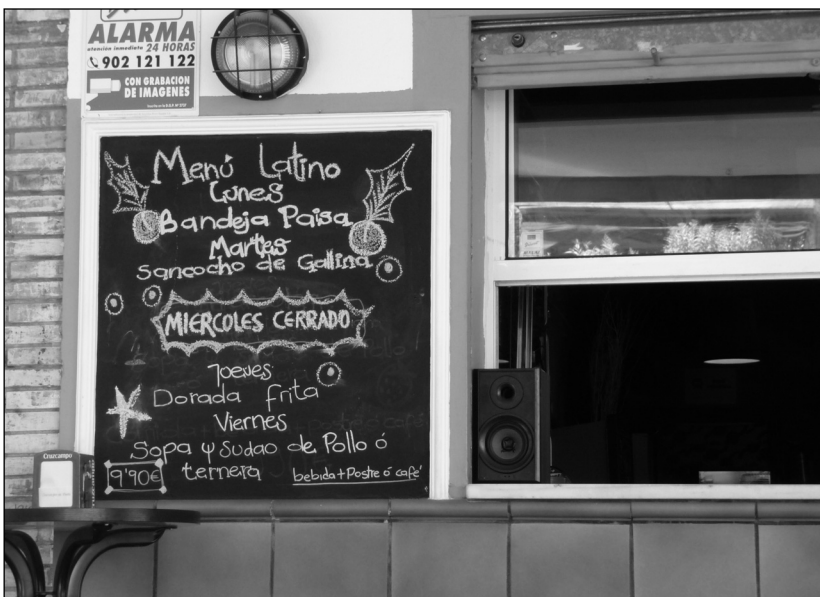 ALARMA
atención inmediata 24 HORAS
902 121 122
CON GRABACION
DE IMAGENES
Menú Latino
Lunes
Bandeja Paisa
Martes
Sancocho de Gallina
MIERCOLES CERRADO
Joeves
Dorada frita
Viernes
Sopa y Sudao de Pollo ó
ternera
9'90€
bebida+Postre ó café
Cruzcampo